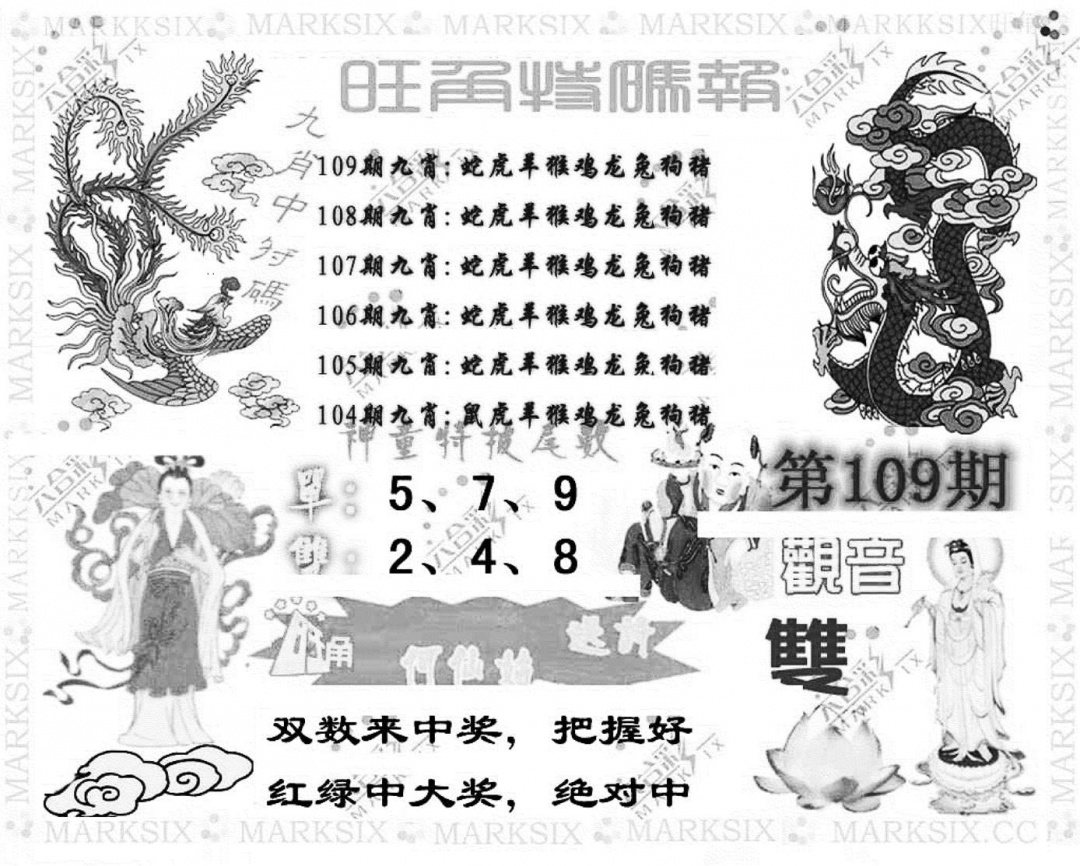 MARKKSIX MARKSIX MARKSIX MARKSIX MARKKSIX
旺角特碼報
九肖中特碼
109期九肖:蛇虎羊猴鸡龙兔狗猪
108期九肖:蛇虎羊猴鸡龙兔狗猪
107期九肖:蛇虎羊猴鸡龙兔狗猪
106期九肖:蛇虎羊猴鸡龙兔狗猪
105期九肖:蛇虎羊猴鸡龙兔狗猪
104期九肖:鼠虎羊猴鸡龙兔狗猪
神童特报尾数
單:5、7、9
雙:2、4、8
第109期
觀音
雙
旺角
何仙姑
双数来中奖，把握好
红绿中大奖，绝对中
MARKSIX MARKSIX MARKSIX MARKSIX MARKSIX.CC